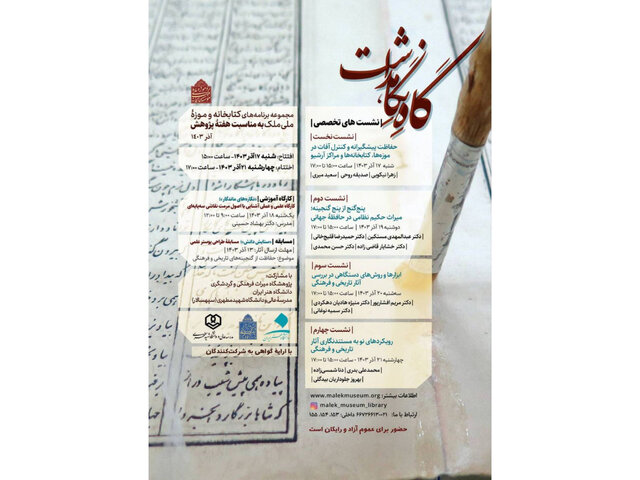 گاهِ نگاهداشت
| نشست های تخصصی |
| نشست نخست |
حفاظت پیشگیرانه و کنترل آفات در
موزه‌ها، کتابخانه‌ها و مراکز آرشیو
شنبه ۱۷ آذر ۱۴۰۳ | - ساعت ۱۵:۰۰ تا ۱۷:۰۰
| زهرا نیکویی | صدیقه روحی | سعید میری |
| نشست دوم |
پنج‌گنج از پنج گنجینه؛
میراث حکیم نظامی در حافظهٔ جهانی
دوشنبه ۱۹ آذر ۱۴۰۳ | - ساعت ۱۵:۰۰ تا ۱۷:۰۰
| دکتر عبدالمهدی مستکین | دکتر حمیدرضا قلیچ‌خانی |
| دکتر خشایار قاضی زاده | دکتر حسن محمدی |
| نشست سوم |
ابزارها و روش‌های دستگاهی در بررسی
آثار تاریخی و فرهنگی
سه‌شنبه ۲۰ آذر ۱۴۰۳ | - ساعت ۱۵:۰۰ تا ۱۷:۰۰
| دکتر مریم افشارپور | دکتر منیژه هادیان دهکردی |
| دکتر سمیه نوغانی |
| نشست چهارم |
رویکردهای نو به مستندنگاری آثار
تاریخی و فرهنگی
چهارشنبه ۲۱ آذر ۱۴۰۳ | - ساعت ۱۵:۰۰ تا ۱۷:۰۰
| محمدعلی بدری | دنا شمسی‌زاده |
| بهروز جلوداریان بیدگلی |
اطلاعات بیشتر: www.malekmuseum.org
malek_museum_library
ارتباط با ما: ۰۲۱-۶۶۷۲۶۶۱۳ داخلی: ۱۵۳، ۱۵۴، ۱۵۵
حضور برای عموم آزاد و رایگان است
مجموعه برنامه‌های کتابخانه و موزهٔ
ملی ملک به مناسبت هفتهٔ پژوهش
آذر ۱۴۰۳
افتتاح: شنبه ۱۷ آذر ۱۴۰۳ - ساعت ۱۵:۰۰
اختتام: چهارشنبه ۲۱ آذر ۱۴۰۳ - ساعت ۱۷:۰۰
| کارگاه آموزشی | «نگاره‌های ماندگار»:
کارگاه علمی و عملی آشنایی با اصول مرمت نقاشی سه‌پایه‌ای
یک‌شنبه ۱۸ آذر ۱۴۰۳ | ساعت ۹:۰۰ تا ۱۲:۰۰
| مدرس: دکتر بهشاد حسینی
| مسابقه | مسابقهٔ طراحی پوستر علمی
| مهلت ارسال آثار: ۱۳ آذر ۱۴۰۳ |
موضوع: حفاظت از گنجینه‌های تاریخی و فرهنگی
با مشارکت:
پژوهشگاه میراث فرهنگی و گردشگری
دانشگاه هنر ایران
مدرسهٔ عالی و دانشگاه شهید مطهری (سپهسالار)
با ارایهٔ گواهی به شرکت‌کنندگان